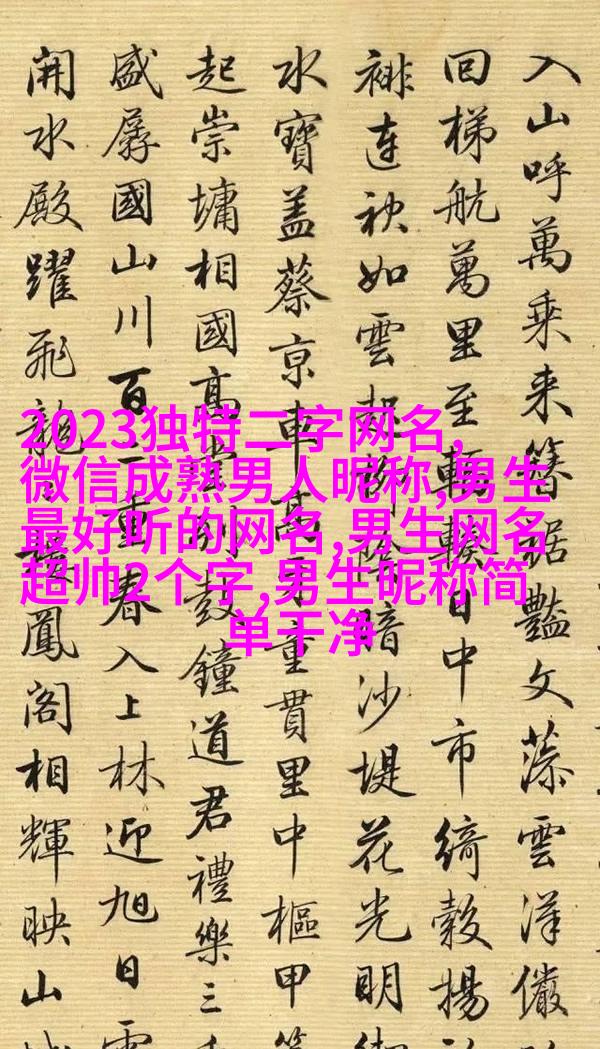 入山呼萬乘来簪裾豔文藻雲洋儼
回梯航萬里至日中市綺縠揚
連袂如雲起暗沙堤花光明
水寶盖蔡京車重貫里中樞甲
起崇墉相國高別鼓鐘道君禮樂三
盛孱國山川百二重春入上林迎旭日
開水殿躍飛龍鳳閣相輝映山
2023独特二字网名,
微信成熟男人昵称,男生
最好听的网名,男生网名
超帅2个字,男生昵称简
单干净